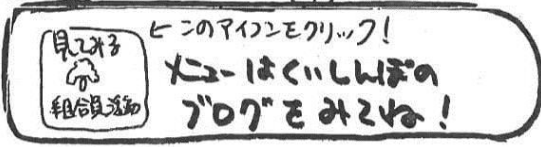 見てみる
組合員活動
←このアイコンをクリック!
メニューはくいしんぼの
ブログをみてね!